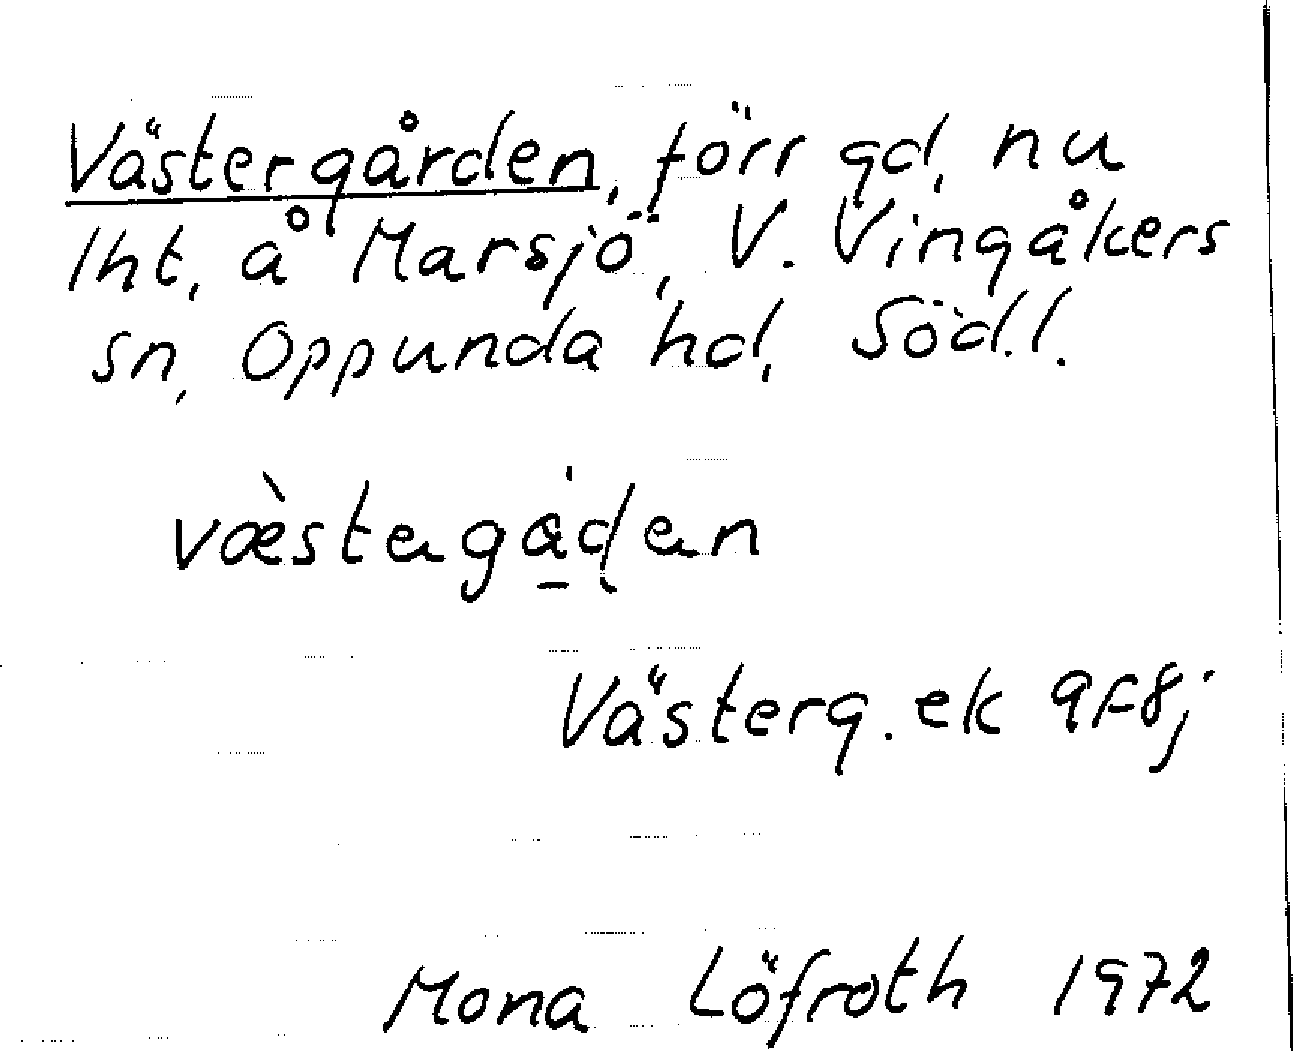 Västergården, förr gd, nu
lht, å Marsjö, V. Vingåkers
sn, Oppunda hd, Söd.l.
væ̀stagɑ̠̍ɖan
Västerg. ek 9F8j
Mona Löfroth 1972